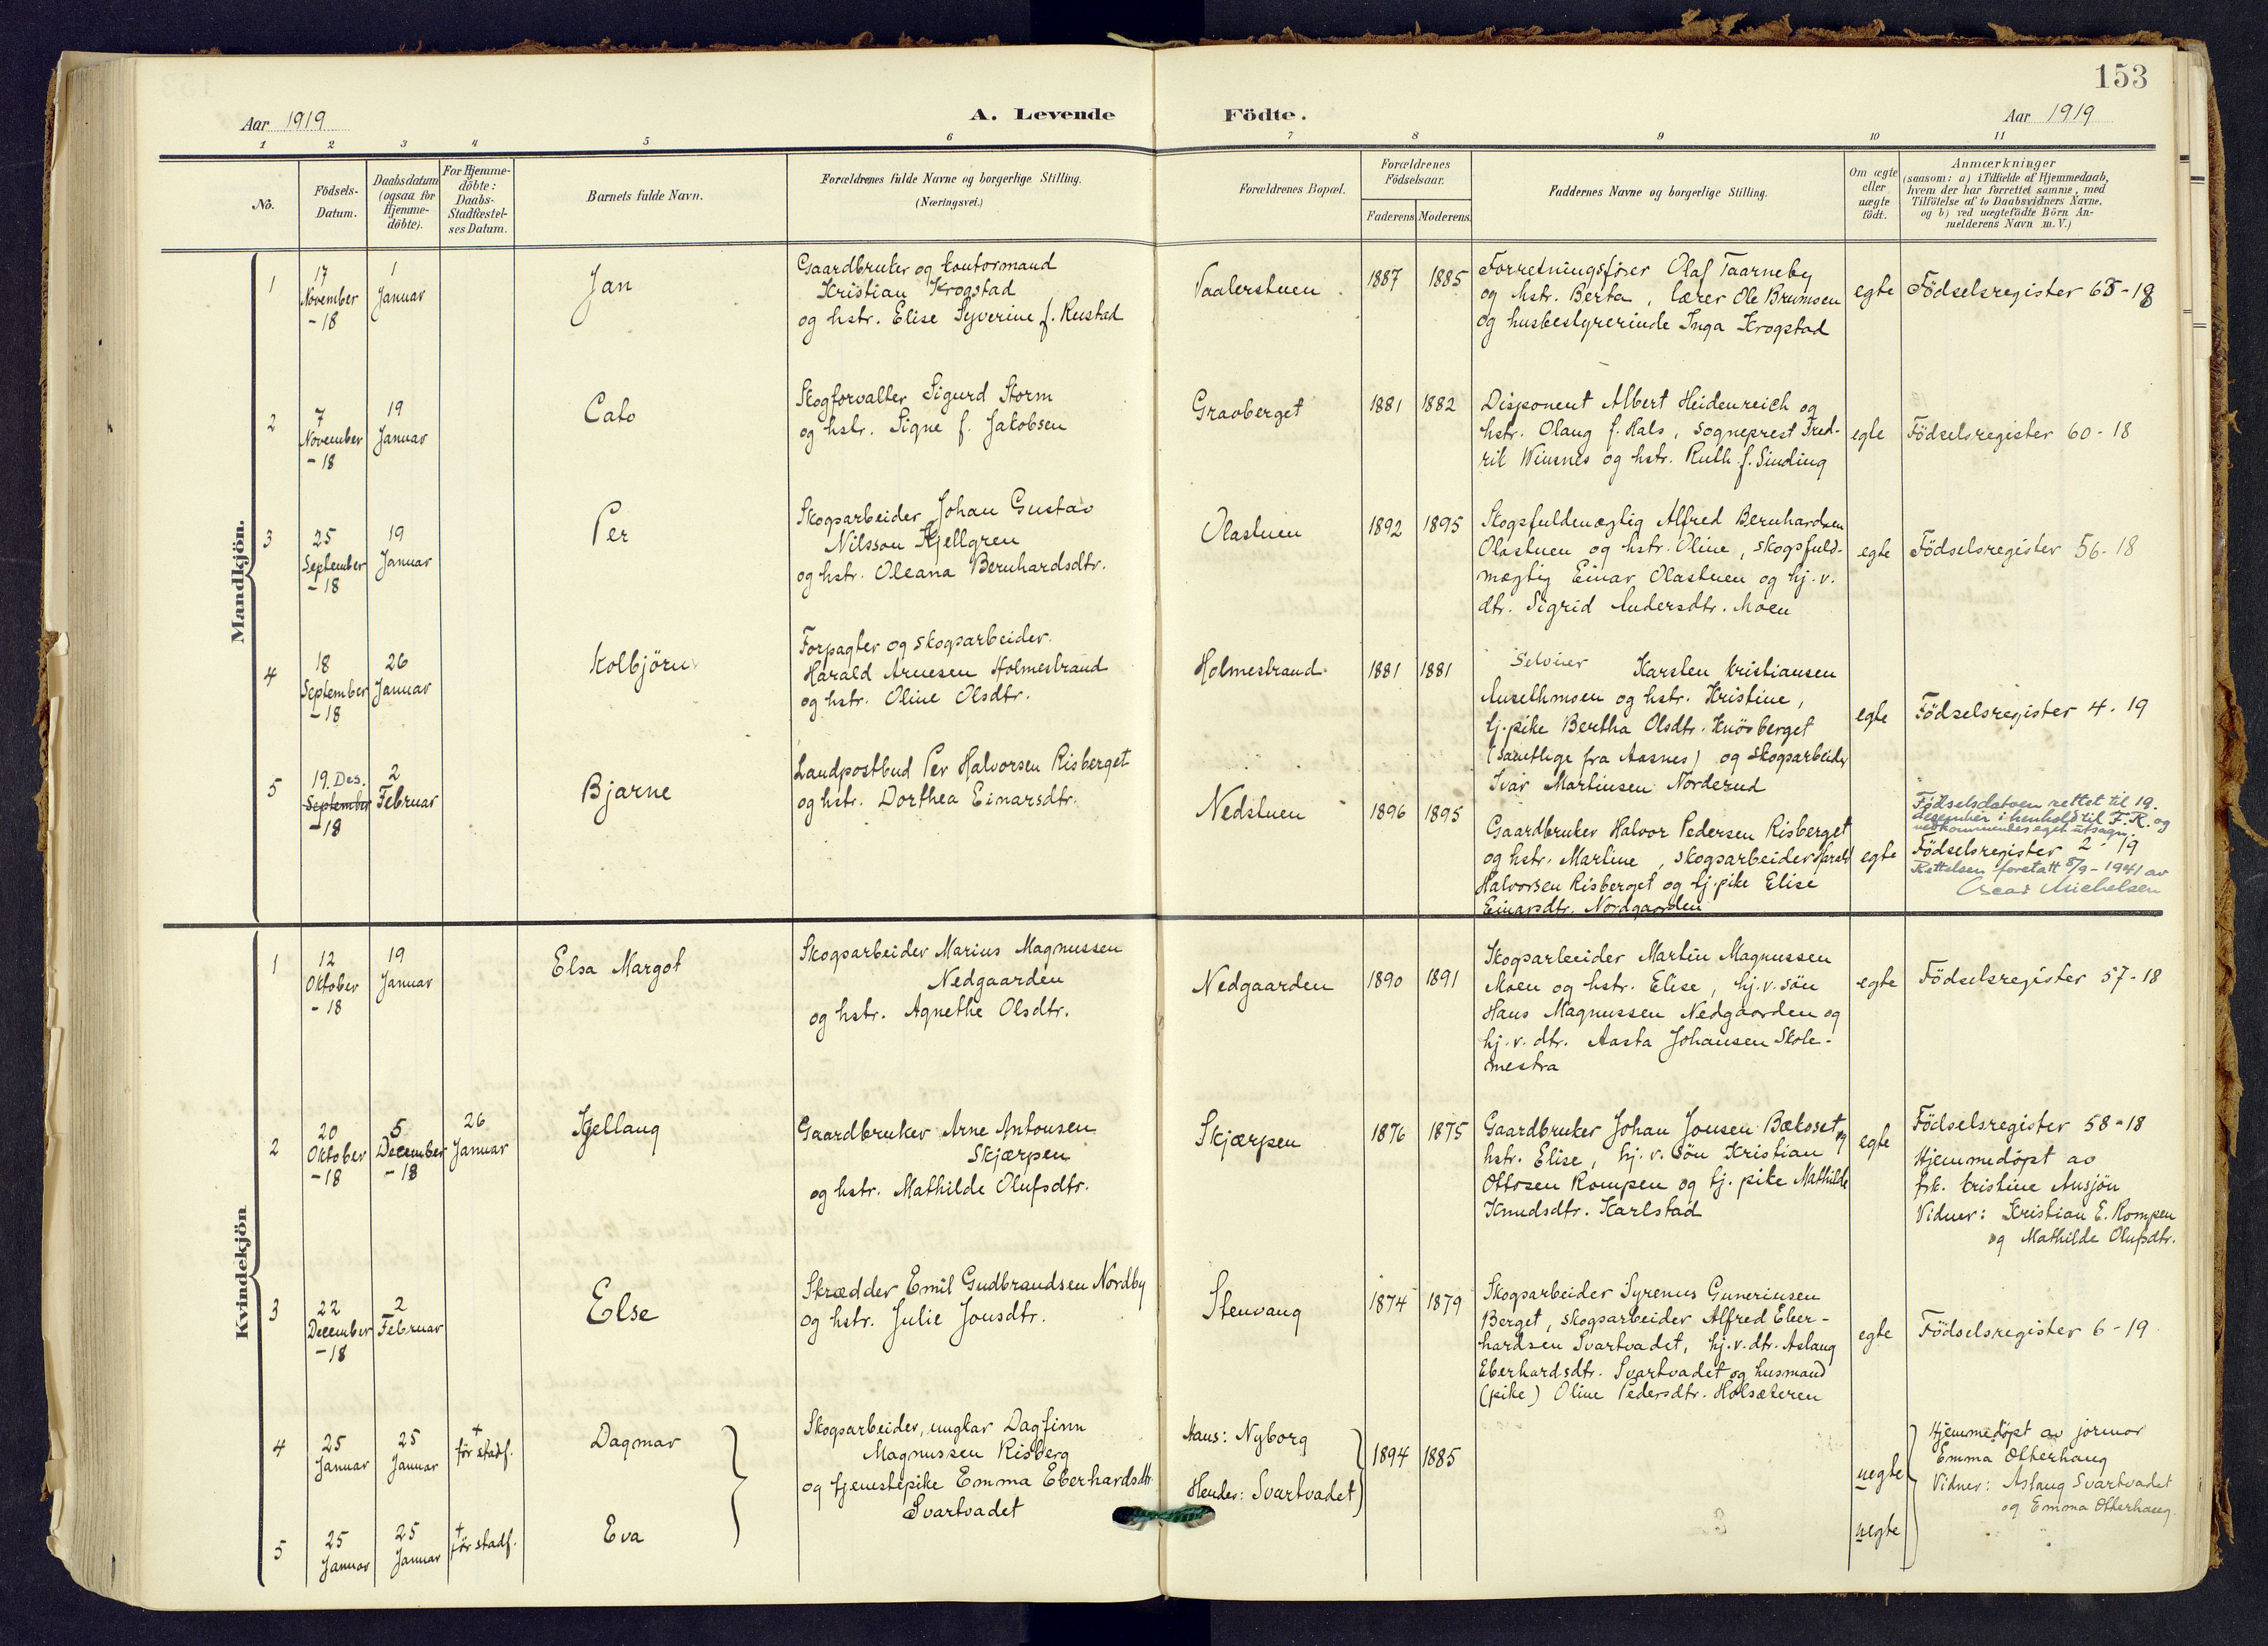 153
Aar 1919
A. Levende Födte.
Aar 1919
1 2 3 4 5 6 7 8 9 10 11
No.
Födsels-
Datum.
Daabsdatum
(ogsaa for
Hjemme-
döbte).
For Hjemme-
döbte:
Daabs-
Stadfæstel-
ses Datum.
Barnets fulde Navn.
Forældrenes fulde Navne og borgerlige Stilling.
(Næringsvei.)
Forældrenes Bopæl.
Forældrenes
Födselsaar.
Faderens Moderens
Faddernes Navne og borgerlige Stilling.
Om ægte
eller
uægte
födt.
Anmærkninger
(saasom: a) i Tilfælde af Hjemmedaab,
hvem der har forrettet samme, med
Tilföielse af to Daabsvidners Navne,
og b) ved uægtefödte Börn An-
melderens Navn m. V.)
Mandkjön.
1
17
November
-18
1
Januar
Jan
Gaardbruker og kontormand
Kristian Krogstad
og hstr. Elise Syverine f. Rustad
Vaalerstuen
1887 1885
Forretningsfører Olaf Taarneby
og hstr. Berta, lærer Ole Brumoen
og husbestyrerinde Inga Krogstad
egte
Födselsregister 65-18
2
7
November
-18
19
Januar
Cato
Skogforvalter Sigurd Storm
og hstr. Signe f. Jakobsen
Gravberget
1881 1882
Disponent Albert Heidenreich og
hstr. Olaug f. Hals, sogneprest Fred-
rik Winsnes og hstr. Ruth f. Sinding
egte
Födselsregister 60-18
3
25
September
-18
19
Januar
Per
Skogsarbeider Johan Gustav
Nilsson Kjellgren
og hstr. Oleana Bernhardsdtr.
Olastuen
1892 1895
Skogsfuldmægtig Alfred Bernhardsen
Olastuen og hstr. Oline, skogsfuld-
mægtig Einar Olastuen og hj. v.
dtr. Sigrid Andersdtr. Moen
egte
Födselsregister 56-18
4
18
September
-18
26
Januar
Kolbjörn
Forpagter og skogsarbeider
Harald Arnesen Holmestrand
og hstr. Oline Olsdtr.
Holmestrand
1881 1881
Selveier Karsten Kristiansen
Anselhmoen og hstr. Kristine,
tj. pike Bertha Olsdtr. Knösberget
(samtlige fra Aasnes) og skogsarbeider
Ivar Martinsen Norderud
egte
Födselsregister 4-19
5
19. Des.
September
-18
2
Februar
Bjarne
Landpostbud Per Halvorsen Risberget
og hstr. Dorthea Einarsdtr.
Nedstuen
1896 1895
Gaardbruker Halvor Pedersen Risberget
og hstr. Martine, skogsarbeider Harald
Halvorsen Risberget og tj. pike Elise
Einarsdtr. Nordgaarden
egte
Födselsdatoen rettet til 19.
desember i henhold til F. R. og
vedkommendes eget utsagn.
Födselsregister 2-19
Rettelsen foretatt 8/9-1941 av
Oscar Michelsen
Kvindekjön
1
12
Oktober
-18
19
Januar
Elsa Margot
Skogsarbeider Marius Magnussen
Nedgaarden
og hstr. Agnethe Olsdtr.
Nedgaarden
1890 1891
Skogsarbeider Martin Magnussen
Moen og hstr. Elise, hj. v. sön
Hans Magnussen Nedgaarden og
hj. v. dtr. Aasta Johansen Skole-
mestra
egte
Födselsregister 57-18
2
20
Oktober
-18
5
December
-18
26
Januar
Kjellaug
Gaardbruker Arne Antonsen
Skjærpen
og hstr. Mathilde Olufsdtr.
Skjærpen
1876 1875
Gaardbruker Johan Jonsen Bækoset og
hstr. Elise, hj. v. Sön Kristian
Ottosen Rompen og tj. pike Mathilde
Knudsdtr. Karlstad
egte
Födselsregister 58-18
Hjemmedøpt av
frk. Kristine Ansjön
Vidner: Kristian E. Rompen
og Mathilde Olufsdtr.
3
22
December
-18
2
Februar
Else
Skrædder Emil Gudbrandsen Nordby
og hstr. Julie Jonsdtr.
Stenvang
1874 1879
Skogsarbeider Syrenus Guneriusen
Berget, skogsarbeider Alfred Eber-
hardsen Svartvadet, hj. v. dtr. Aslaug
Eberhardsdtr. Svartvadet og husmand
(pike) Oline Pedersdtr. Holsæteren
egte
Födselsregister 6-19
4
25
Januar
25
Januar
+
før stadf.
Dagmar
Skogsarbeider, ungkar Dagfinn
Magnussen Risberg
og tjenestepike Emma Eberhardsdtr.
Svartvadet
Hans: Nyborg
Hendes: Svartvadet
1894 1885
uegte
Hjemmedøpt av jormor
Emma Otterhaug
Vidner: Aslaug Svartvadet
og Emma Otterhaug.
5
25
Januar
25
Januar
+
før stadf.
Eva
uegte